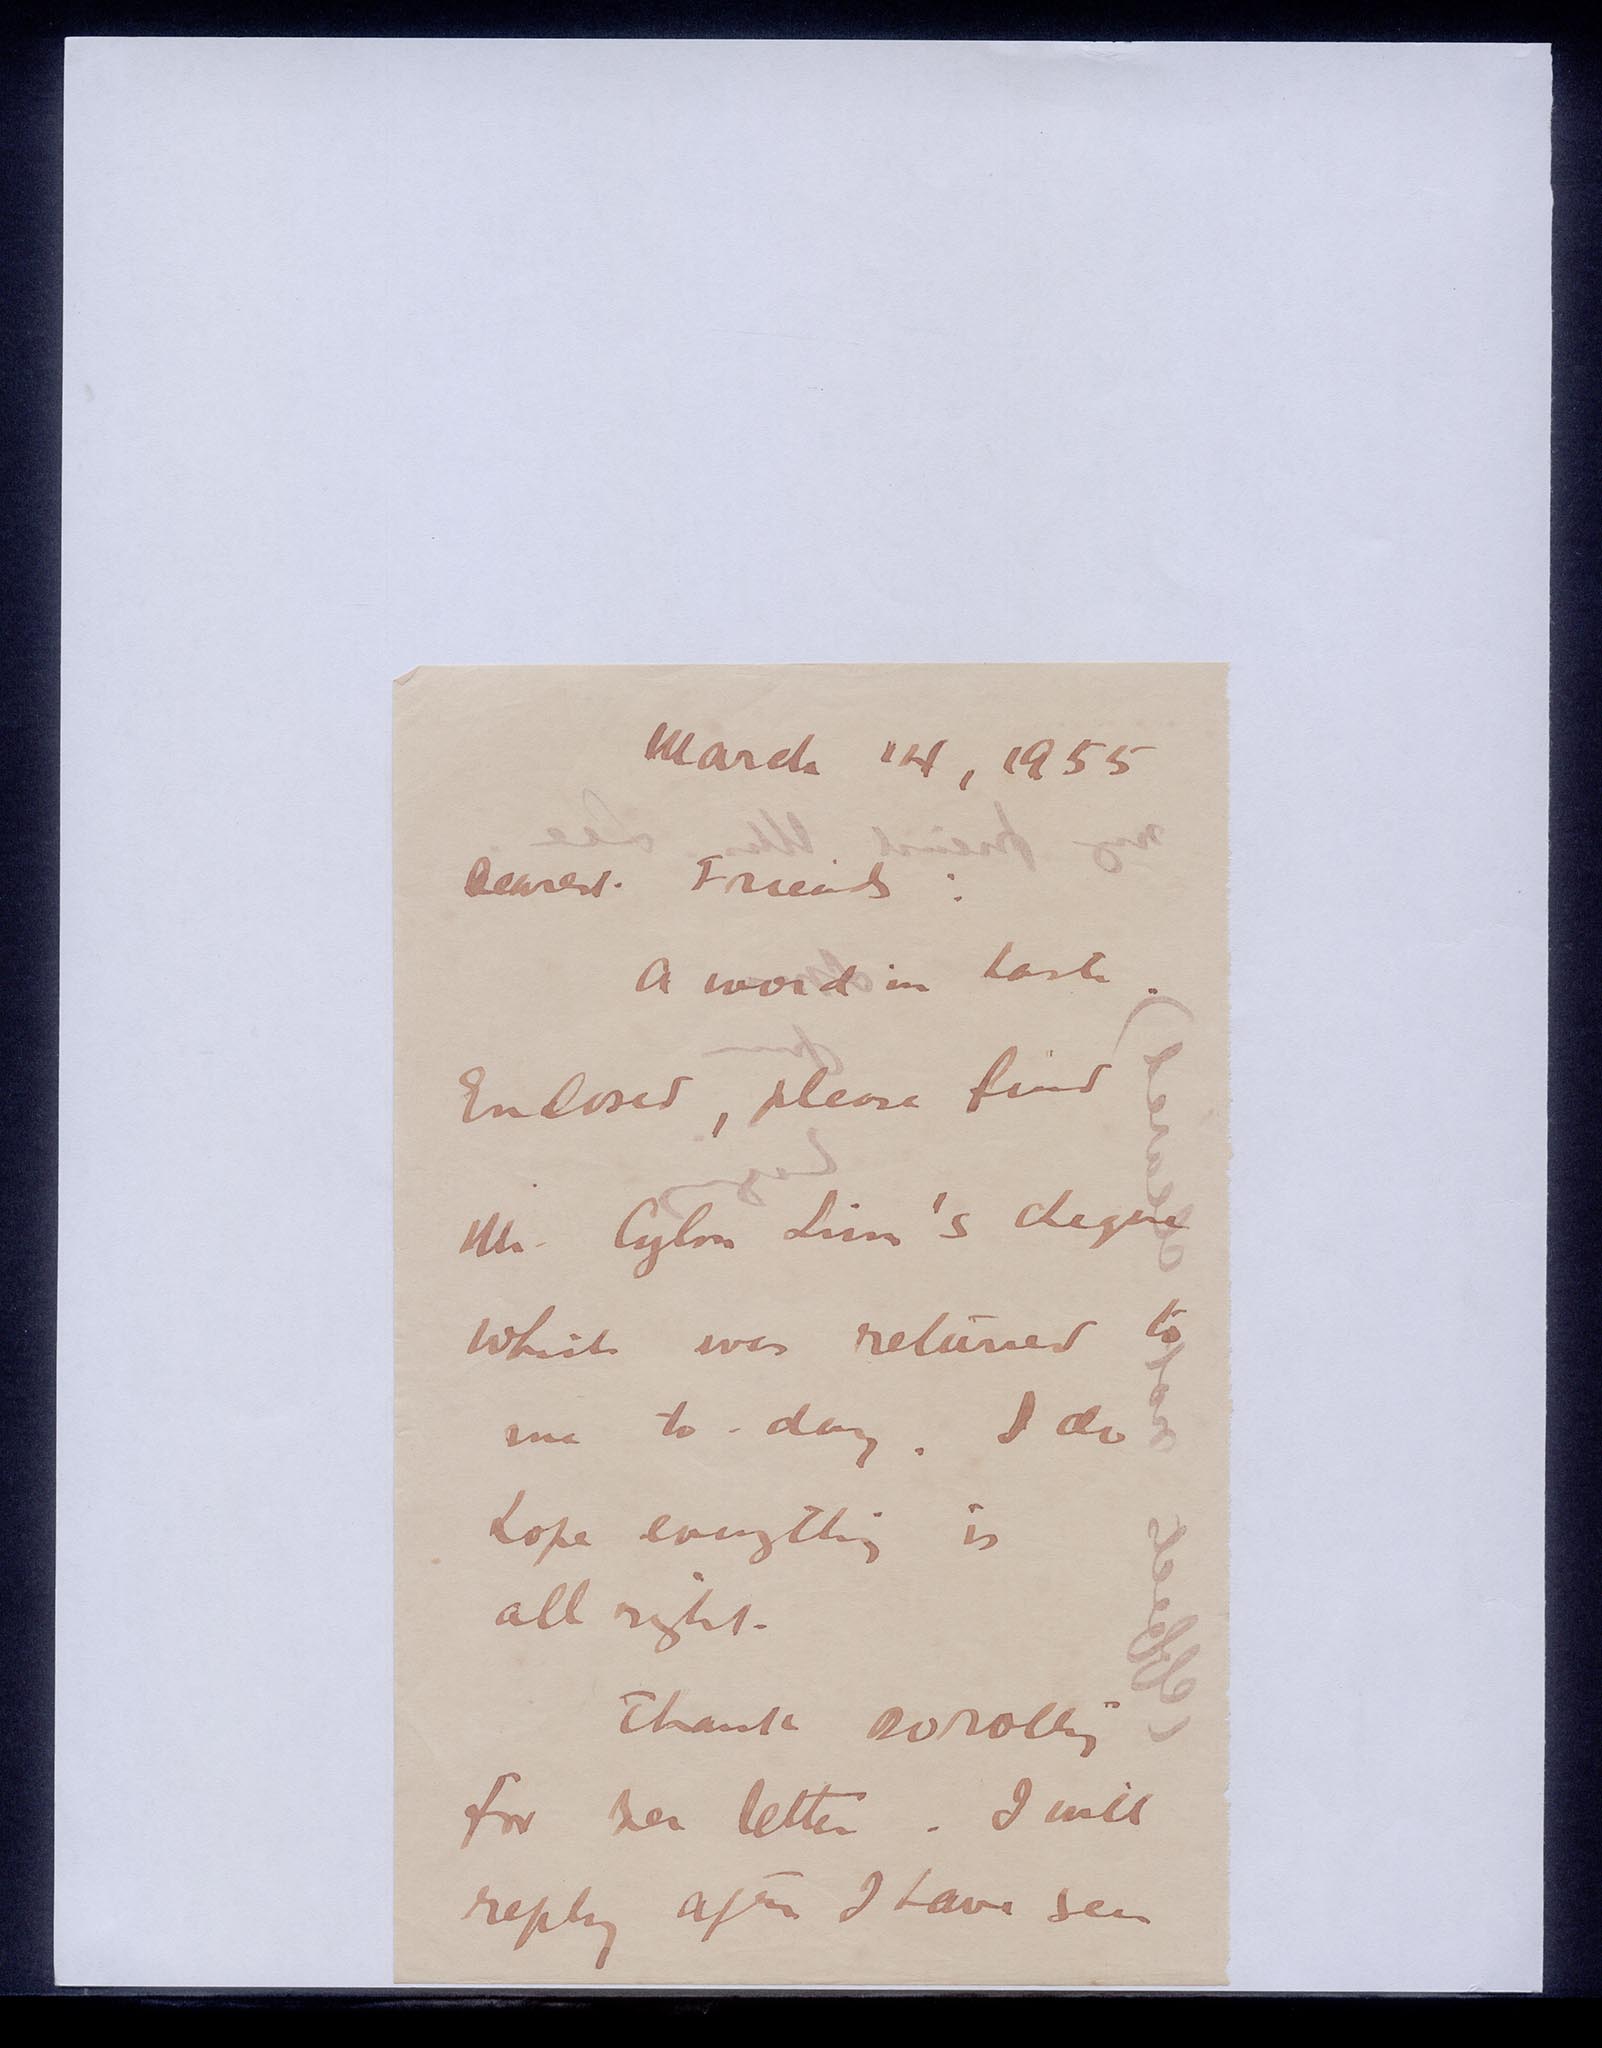 March 14, 1955
Dearest Friends :
A word in haste.
Enclosed, please find
Mr. Cylon Lim's cheque
which was returned to
me to-day. I do
hope everything is
all right.
Thank Dorothy
for her letter. I will
reply after I have seen
my friend Mr. Lee.
Love
from